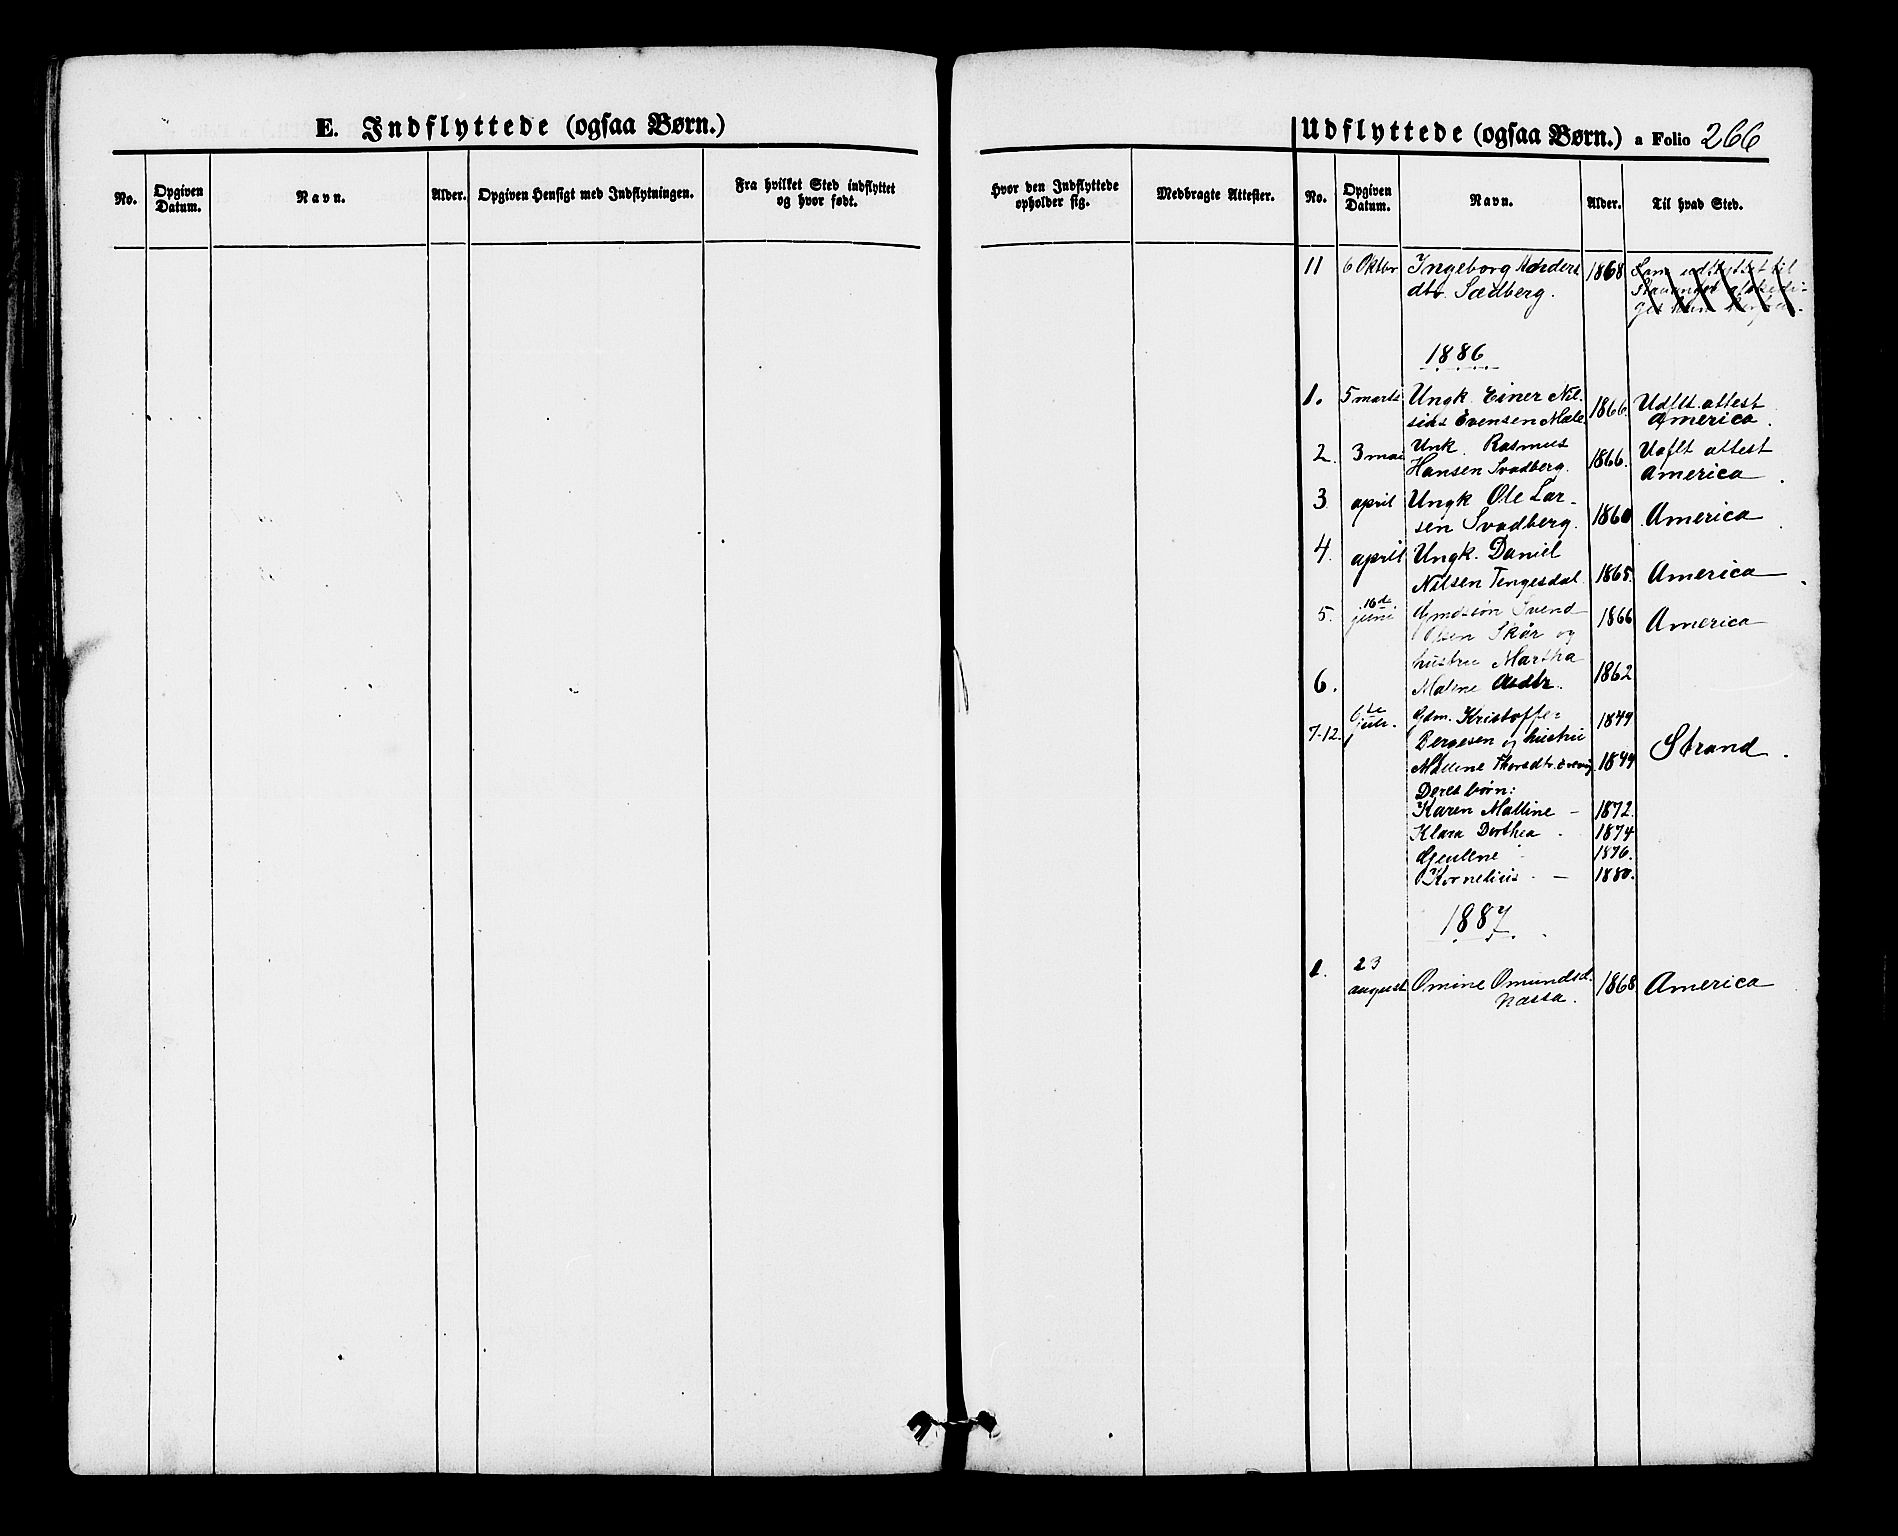 E. Indflyttede (ogsaa Børn.)
No.
Opgiven
Datum.
Navn.
Alder.
Opgiven Hensigt med Indflytningen.
Fra hvilket Sted indflyttet
og hvor født.
Hvor den Indflyttede
opholder sig.
Medbragte Attester.
Udflyttede (ogsaa Børn.) a Folio 266
No.
Opgiven
Datum.
Navn.
Alder.
Til hvad Sted.
11 6 Oktbr Ingeborg 1868 udflyttet til
dtr. Sædberg.
1886
1. 5 marts Ungk. Einer Nil- 1866. Udflt. attest
sius Evensen Mæle. America.
2. 3 mai Unk. Rasmus 1866. Udflt attest
Hansen Svadberg. America.
3 april Ungk Ole Lar- 1860 America
sen Svadberg.
4. april Ungk. Daniel 1865. America
Nilsen Tengesdal.
5. 16de juni Gmdsøn Svend 1866 America
Olsen Skår og
hustru Martha 1862
6. Malene
7-12. 6te juli. Gdm. Kristoffer 1849 Strand.
Bergesen og hustru
Mallene Thorsdtr. 1844
Deres børn:
Karen Malline - 1872.
Klara Dorthea - 1874
Gjertine 1876.
Kornelius - 1880.
1887
1. 23 august Omine Omundsd. 1868 America
Næssa.